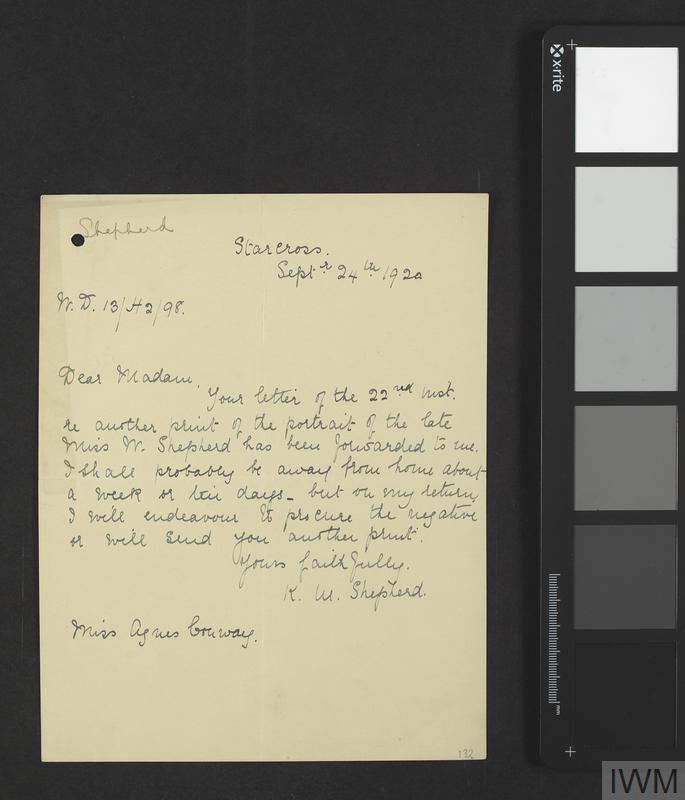 Shepherd
Starcross.
Septr 24th 1920
W.D. 13/H2/98.
Dear Madam,
Your letter of the 22nd inst.
re another print of the portrait of the late
Miss W. Shepherd has been forwarded to me.
I shall probably be away from home about
a week or ten days - but on my return,
I will endeavour to procure the negative
or will send you another print.
Yours faithfully.
K. M. Shepherd.
Miss Agnes Conway.
132
x-rite
mm
IWM